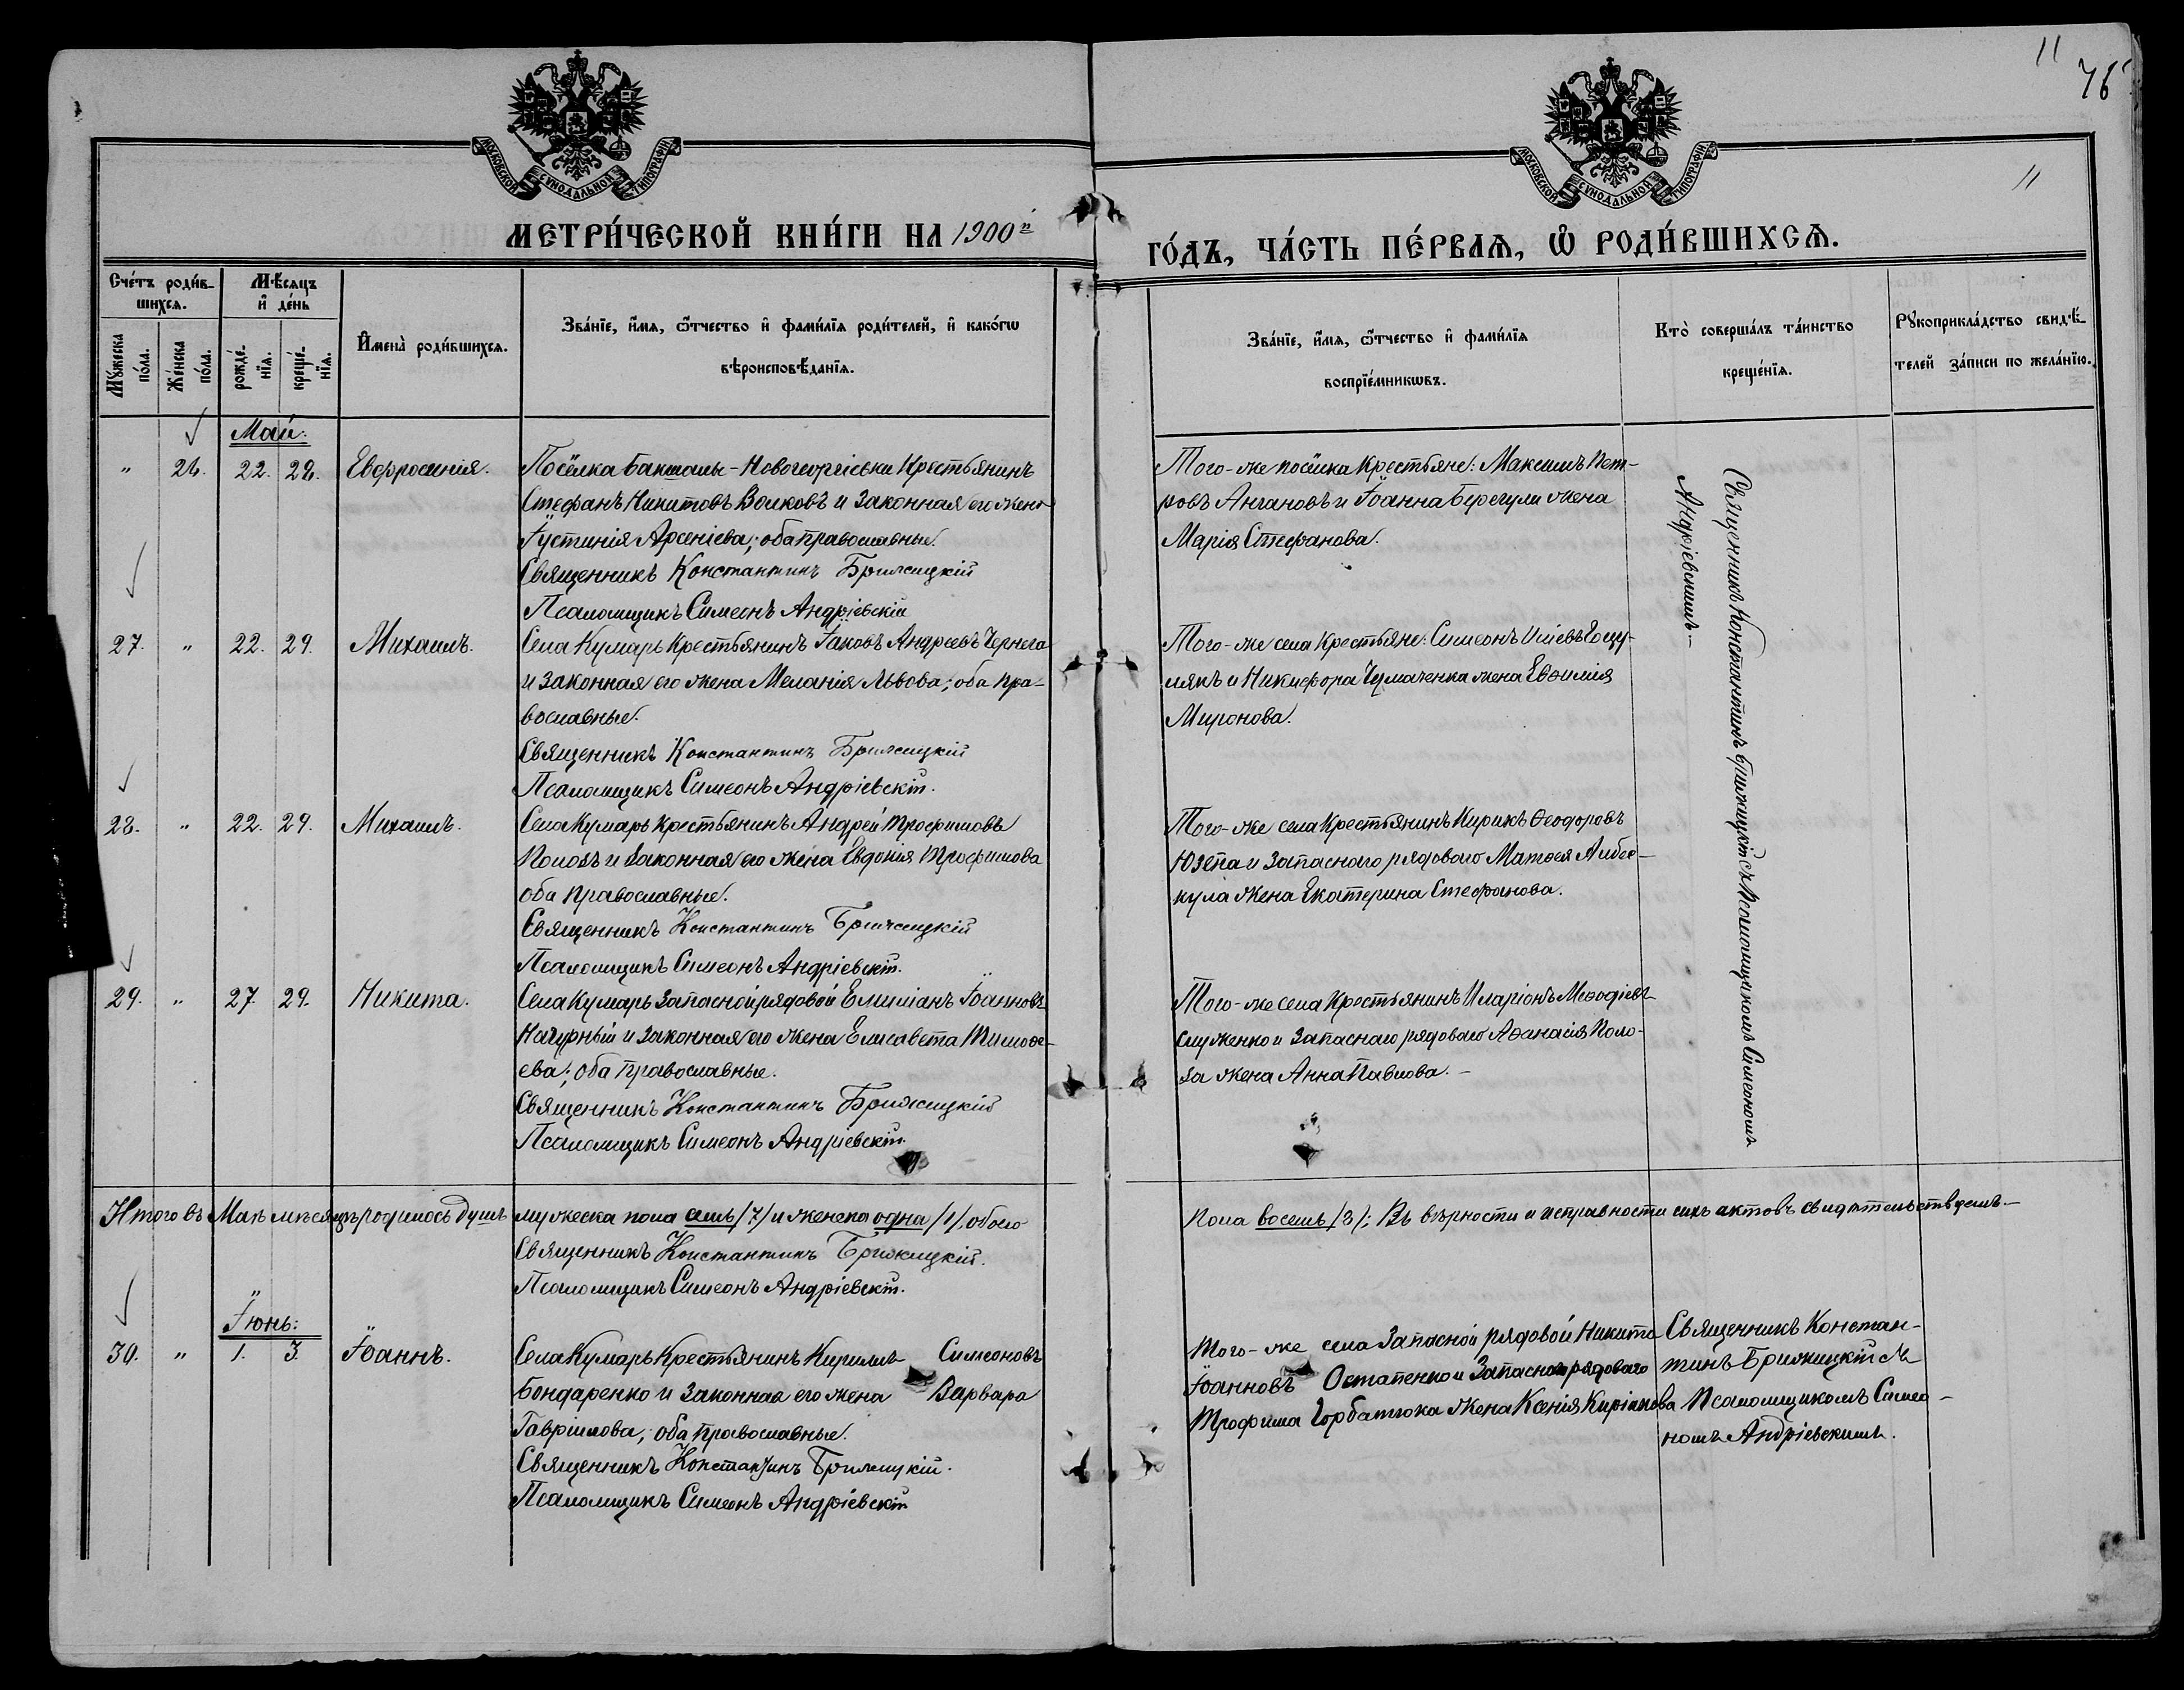 11
76
11
МОСКОВСКОЙ СѴНОДАЛЬНОЙ ТИПОГРАФІИ
МОСКОВСКОЙ СѴНОДАЛЬНОЙ ТИПОГРАФІИ
МЕТРИ́ЧЕСКОЙ КНИ́ГИ НА 1900й
ГО́ДЪ, ЧА́СТЬ ПЕ́РВАѦ, Ѡ РОДИ́ВШИХСѦ.
Сче́тъ роди́в-
шихсѧ.
Мѣ́сѧцъ
и де́нь
Мꙋ́жеска по́ла.
Же́нска по́ла.
рожде́-
нїѧ.
креще́-
нїѧ.
И҆мена̀ роди́вшихсѧ.
Зва́нїе, и҆́мѧ, ѿтчество и҆ фами́лїѧ роди́телей, и҆ како́гѡ
вѣроисповѣ́данїѧ.
Зва́нїе, и҆́мѧ, ѿтчество и҆ фами́лїѧ
воспрїе́мникѡвъ.
Кто̀ соверша́лъ та́инство
креще́нїѧ.
Рꙋкоприкла́дство свидѣ́-
телей за́писи по жела́нїю.
Май:
" 26. 22. 28. Евфросинія. Посёлка Бакшалы-Новогеоргіевки Крестьянинъ
Стефанъ Никитовъ Волковъ и законная его жена
Іустинія Арсеніева; оба православные.
Священникъ Константинъ Брилсицкій
Псаломщикъ Симеонъ Андріевскій
Того-же посёлка Крестьяне: Максимъ Пет-
ровъ Ангановъ и Іоанна Берегули жена
Марія Стефанова.
Священникъ Константинъ Брижицкій съ Псаломщикомъ Симеономъ
Андріевскимъ-
27. " 22. 29. Михаилъ. Села Кумарь Крестьянинъ Іаковъ Андреевъ Чернега
и законная его жена Меланія Львова; оба пра-
вославные.
Священникъ Константинъ Брилсицкій
Псаломщикъ Симеонъ Андріевскій.
Того-же села Крестьяне: Симеонъ Иліевъ Гоцу-
лякъ и Никифора Чумаченка жена Евѳимія
Миронова.
28. " 22. 29. Михаилъ. Села Кумарь Крестьянинъ Андрей Трофимовъ
Поповъ и законная его жена Евдокія Трофимова
оба православные.
Священникъ Константинъ Брижицкій
Псаломщикъ Симеонъ Андріевскій.
Того-же села Крестьянинъ Кирикъ Ѳеодоровъ
Юзепа и запаснаго рядоваго Матѳея Либер-
кула жена Екатерина Стефанова.
29. " 27. 29. Никита. Села Кумарь запасной рядовой Емиліанъ Іоанновъ
Нагурный и законная его жена Елисавета Тимоѳе-
ева; оба православные.
Священникъ Константинъ Брижицкій
Псаломщикъ Симеонъ Андріевскій.
Того-же села Крестьянинъ Иларіонъ Меѳодіевъ
Служенко и запаснаго рядоваго Аѳанасія Коло-
за жена Анна Павлова.-
Итого въ Маѣ мѣсяцѣ родилось душъ мужеска пола семь /7/ и женска одна /1/, обоего
пола восемь /8/; Въ вѣрности и исправности сихъ актовъ свидѣтельствуемъ-
Священникъ Константинъ Брижицкій.
Псаломщикъ Симеонъ Андріевскій.
Іюнь:
30. " 1. 3. Іоаннъ. Села Кумарь Крестьянинъ Кириллъ Симеоновъ
Бондаренко и законная его жена Варвара
Гавріилова; оба православные.
Священникъ Константинъ Брижицкій.
Псаломщикъ Симеонъ Андріевскій
Того-же села запасной рядовой Никита
Іоанновъ Остапенко и запаснаго рядоваго
Трофима Горбатюка жена Ксенія Киріакова
Священникъ Констан-
тинъ Брижицкій съ
Псаломщикомъ Симео-
номъ Андріевскимъ.